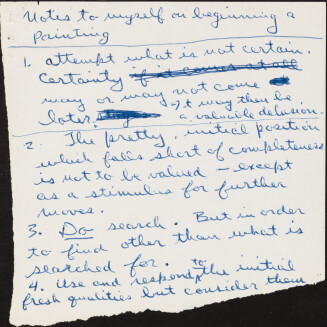 Notes to myself on beginning a
painting
1. attempt what is not certain.
Certainty
may or may not come
later. It may then be
a valuable delusion.
2. The pretty, initial position
which falls short of completeness
is not to be valued – except
as a stimulus for further
moves.
3. Do search. But in order
to find other than what is
searched for.
4. Use and respond to the initial
fresh qualities but consider them